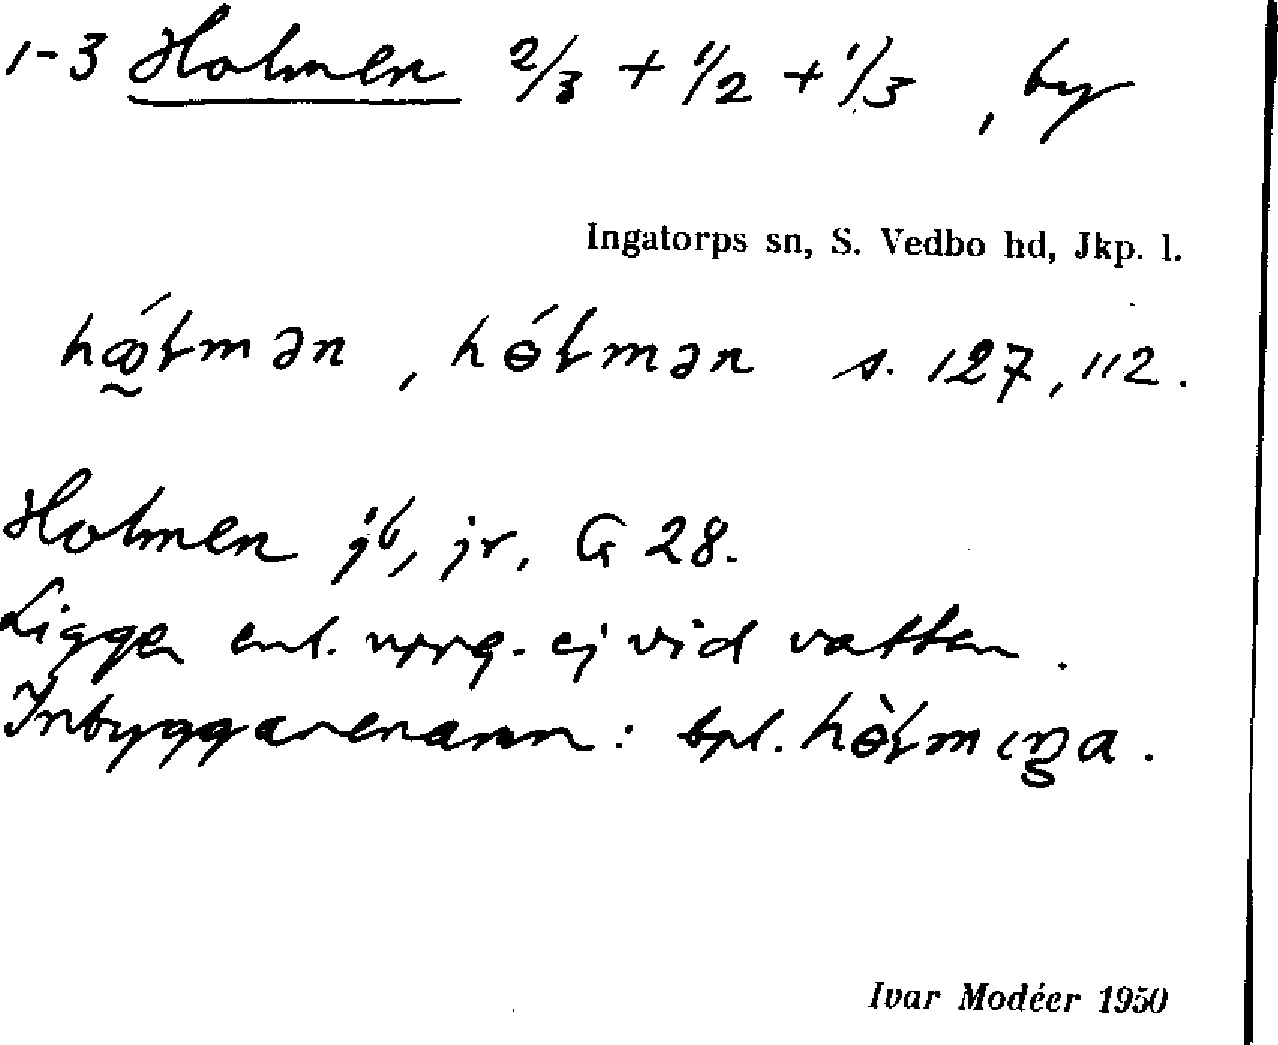 1-3 Holmen 2/3 + 1/2 + 1/3, by
Ingatorps sn, S. Vedbo hd, Jkp. l.
hǿ̰ɫmən, hɵ́ɫmən s. 127, 112.
Holmen jb, jr, G 28.
Ligger enl. uppg. ej vid vatten.
Inbyggarenamn: bpl. hɵ̀ɫmıŋa.
Ivar Modéer 1950